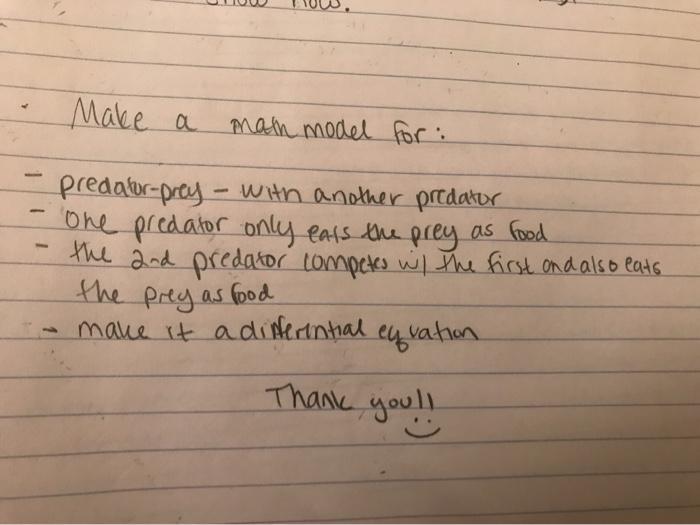 show now.
Make a math model for:
- predator-prey - with another predator
- one predator only eats the prey as food
- the 2nd predator competes w/ the first and also eats
the prey as food
- make it a differential equation
Thank you!!